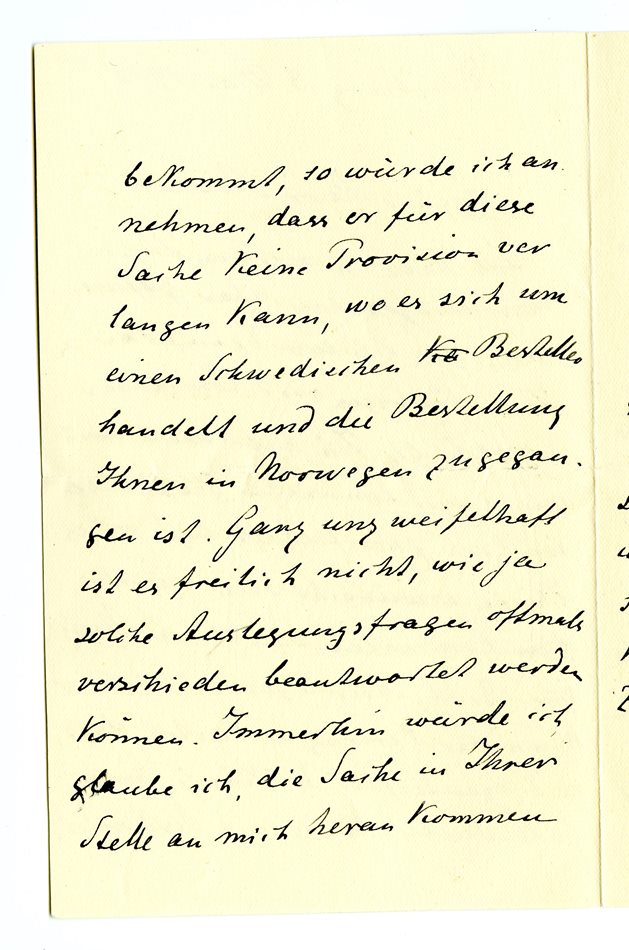 bekommt, so würde ich an
nehmen, dass er für diese
Sache Keine Provision ver
langen Kann, wo es sich um
einen Schwedischen Besteller
handelt und die Bestellung
Ihnen in Norwegen zugegan-
gen ist. Ganz unzweifelhaft
ist es freilich nicht, wie ja
solche Auslegungsfragen oftmals
verschieden beantwortet werden
Können. Immerhin würde ich
glaube ich, die Sache in Ihrer
Stelle an mich heran Kommen